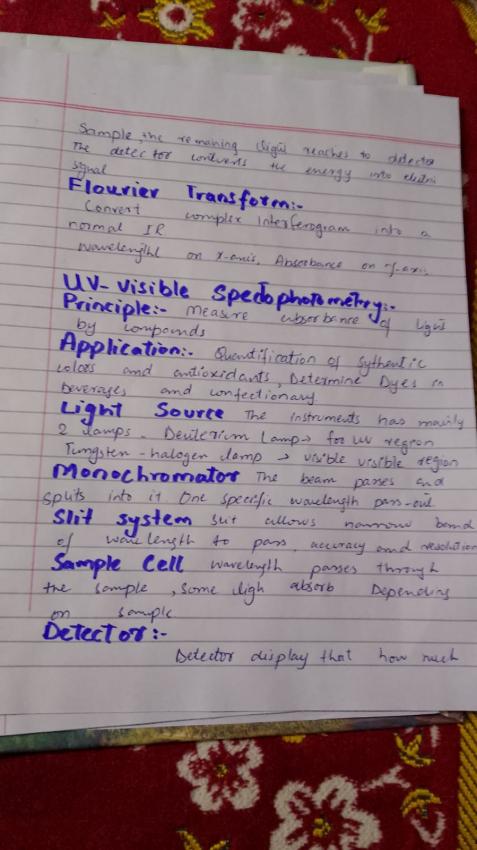 Sample, the remaining light reaches to detector
The detector converts the energy into electri
signal
Flourier Transform:-
Convert complex Interferogram into a
normal IR
wavelenght on x-axis, Absorbance on y-axis
UV-Visible Spedophotometry:-
Principle:- Measure absorbance of light
by compounds
Application:- Quantification of Sythentic
colors and antioxidants, Determine Dyes in
beverages and confectionary
Light Source The instruments has mainly
2 lamps. Deuterium Lamp → for uv region
Tungsten-halogen lamp → visible visible region
Monochromator The beam passes and
splits into it One specific wavelength pass-out
Slit system slit allows narrow band
of wavelength to pass, accuracy and resolution
Sample Cell wavelength passes through
the sample, some ligh absorb Depending
on sample
Detector:-
Detector display that how much